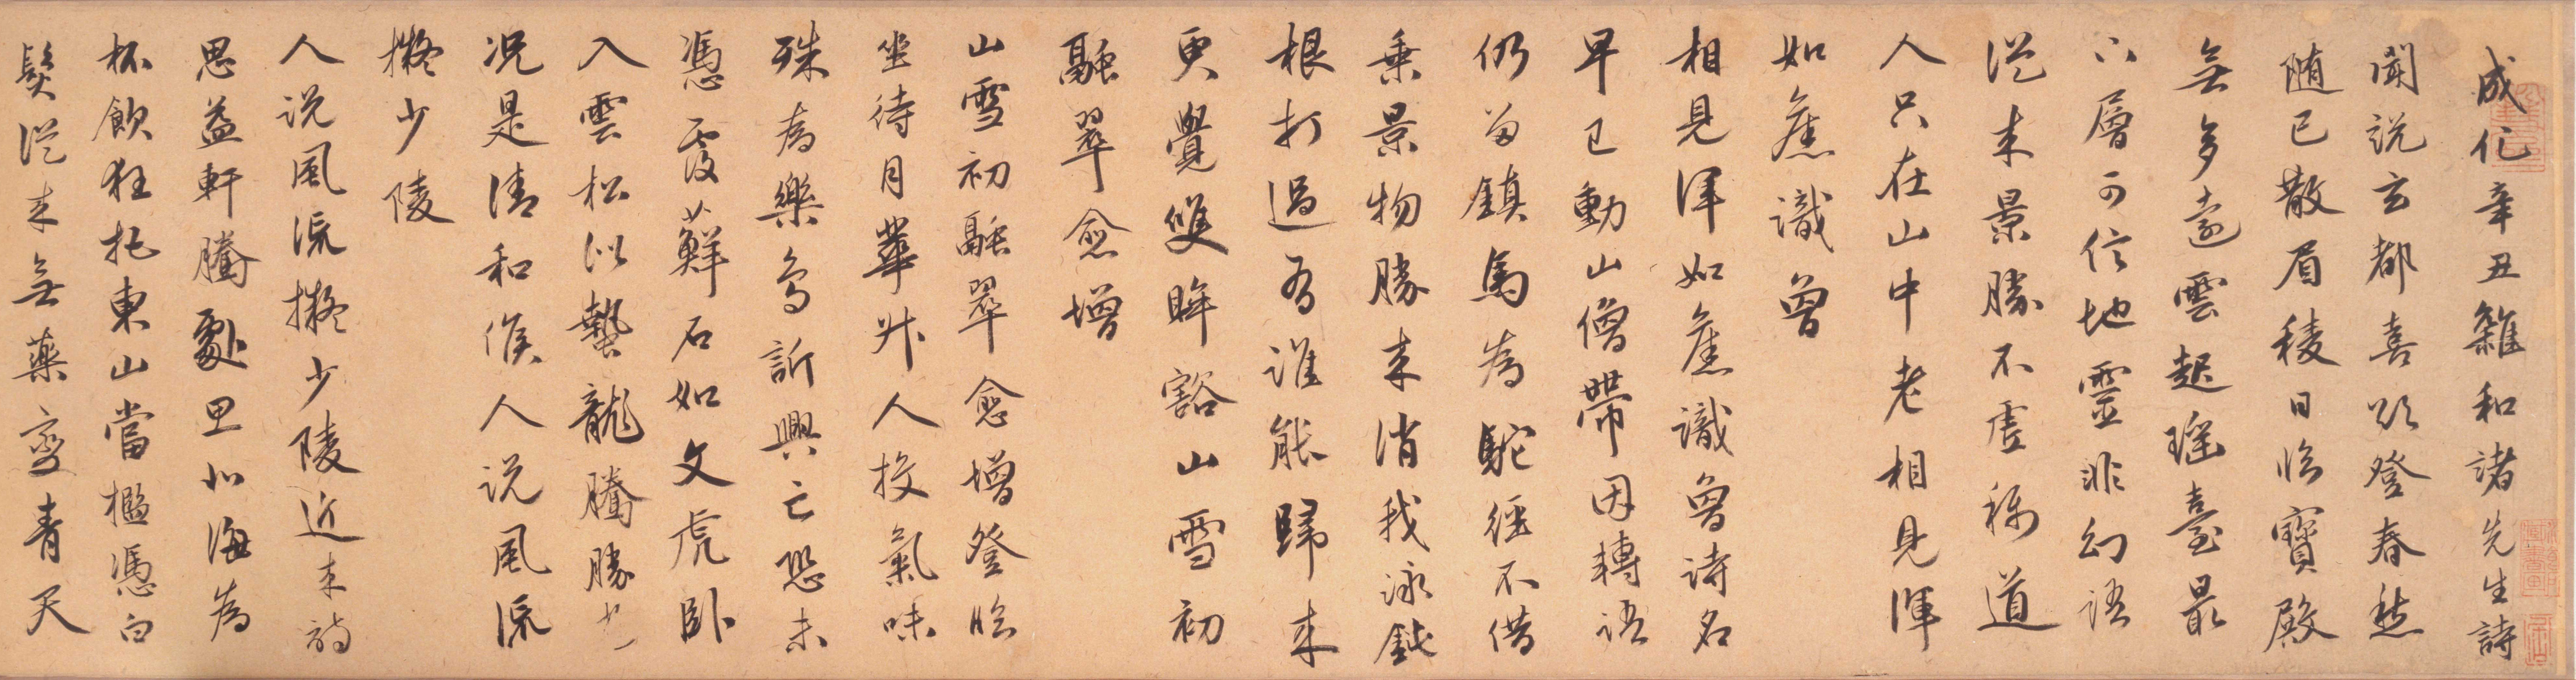 成化辛丑雜和諸先生詩
聞說玄都喜欲登春愁
隨已散眉稜日臨寶殿
無多遠雲起瑤臺最
下層可信地靈非幻語
從來景勝不虛稱道
人只在山中老相見渾
如舊識曾
相見渾如舊識曾詩名
早已動山僧帶因轉語
仍留鎮馬為馱經不借
乗景物勝來消我泳鈍
根打過有誰能歸來
更覺雙眸豁山雪初
融翠愈增
山雪初融翠愈增登臨
坐待月華升人投氣味
殊為樂鳥訢興亡恐未
憑霞蘚石如文虎臥
入雲松似蟄龍騰勝
況是清和候人說風流
擬少陵
人說風流擬少陵近來詩
思益軒騰處思北海為
杯飲狂托東山當檻憑白
髮從來無藥變青天